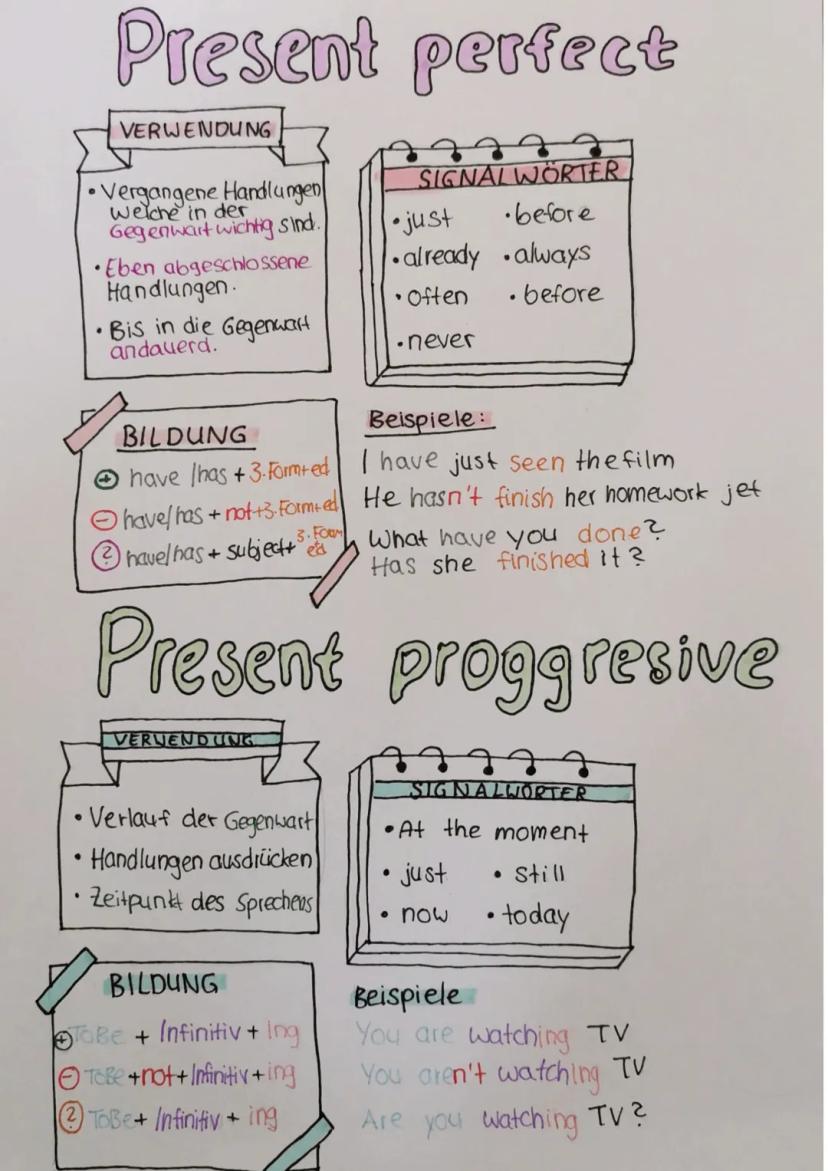 Present perfect
VERWENDUNG
• Vergangene Handlungen
welche in der
Gegenwart wichtig sind.
• Eben abgeschlossene
Handlungen.
• Bis in die Gegenwart
andauerd.
SIGNALWÖRTER
• just • before
• already • always
• often • before
• never
BILDUNG
+ have /has + 3.Form+ed
- have/has + not+3.Form+ed
? have/has + subject+ 3.Form
ed
Beispiele:
I have just seen the film
He hasn't finish her homework jet
What have you done?
Has she finished it?
Present proggresive
VERWENDUNG
• Verlauf der Gegenwart
• Handlungen ausdrücken
• Zeitpunkt des Sprechens
SIGNALWÖRTER
• At the moment
• just • still
• now • today
BILDUNG
+ ToBe + Infinitiv + ing
- ToBe+not+Infinitiv+ing
? ToBe+ Infinitiv + ing
Beispiele
You are watching TV
You aren't watching TV
Are you watching TV?